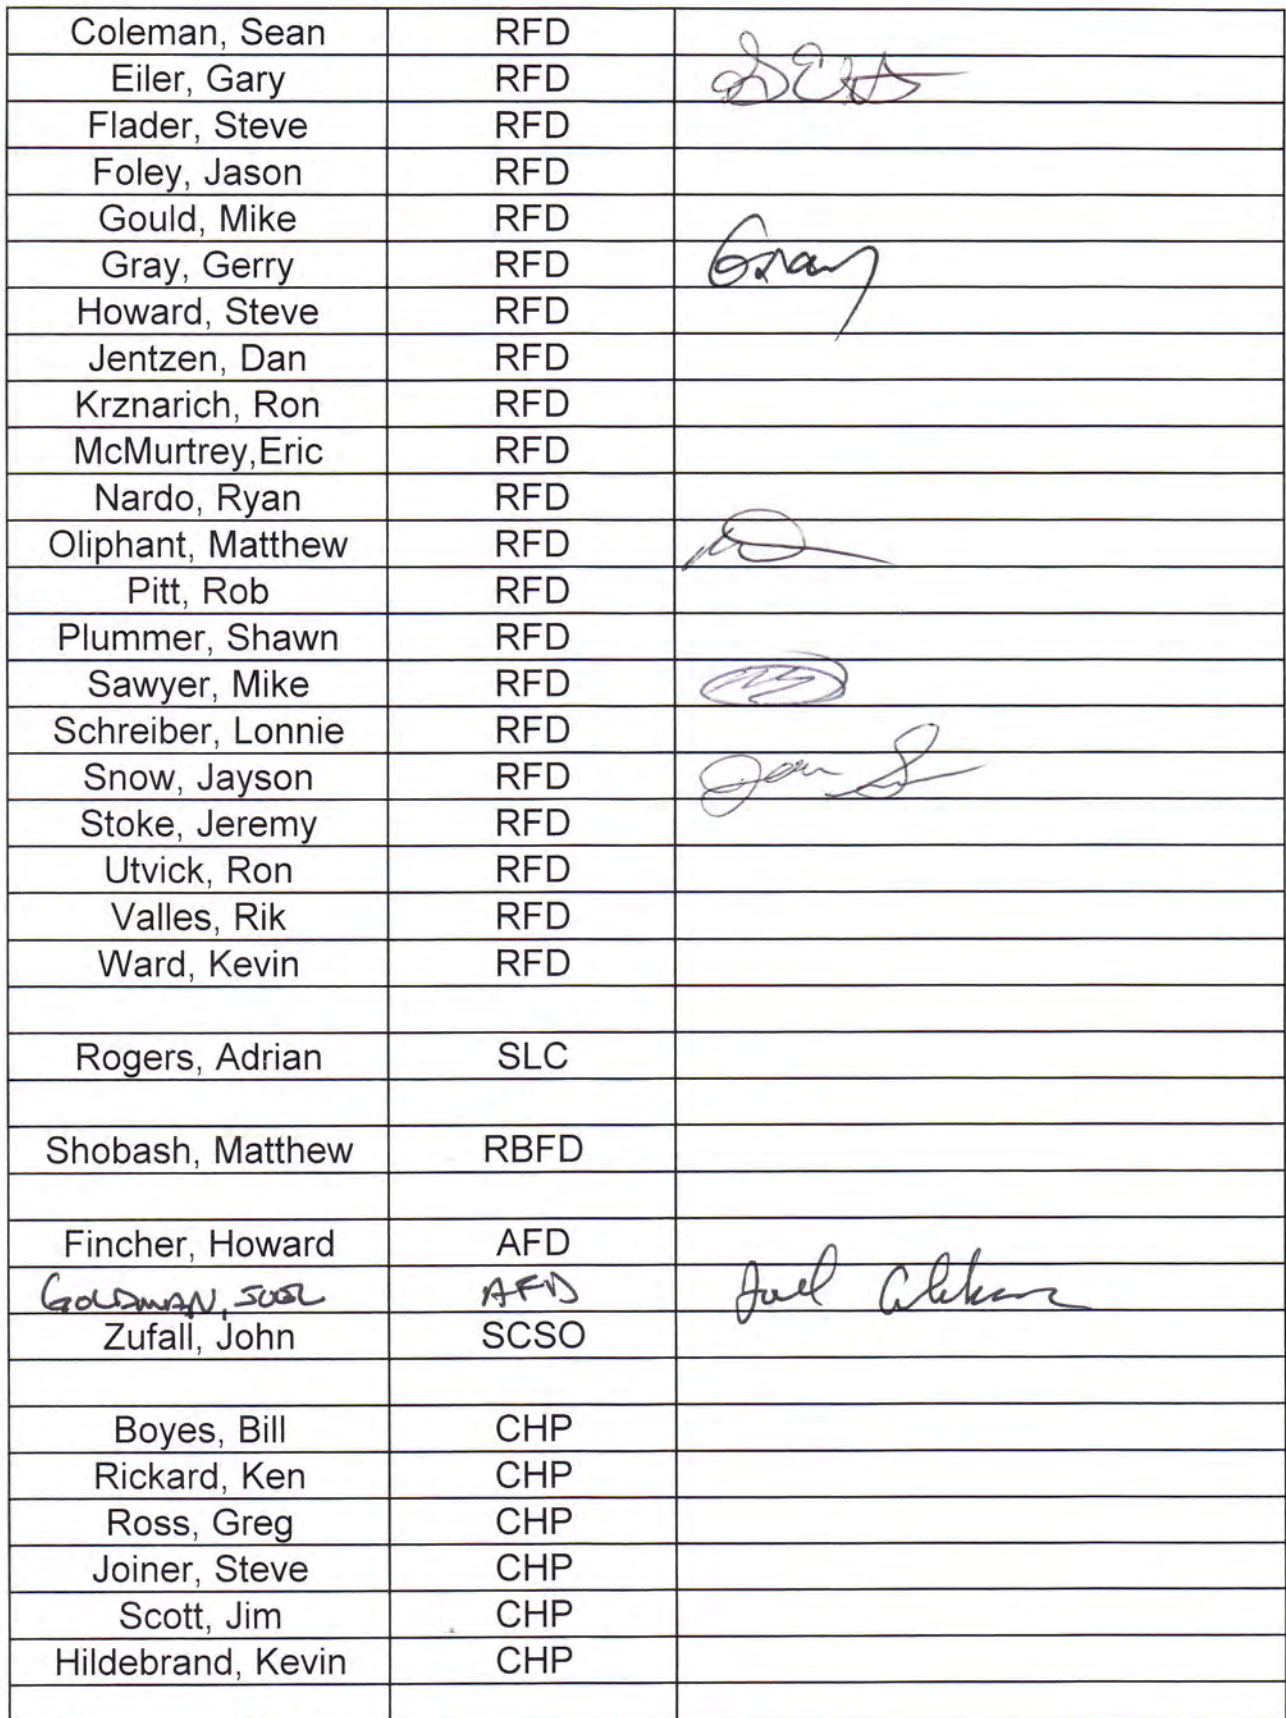 Coleman, Sean RFD
Eiler, Gary RFD
Flader, Steve RFD
Foley, Jason RFD
Gould, Mike RFD
Gray, Gerry RFD Gray
Howard, Steve RFD
Jentzen, Dan RFD
Krznarich, Ron RFD
McMurtrey,Eric RFD
Nardo, Ryan RFD
Oliphant, Matthew RFD
Pitt, Rob RFD
Plummer, Shawn RFD
Sawyer, Mike RFD
Schreiber, Lonnie RFD
Snow, Jayson RFD
Stoke, Jeremy RFD
Utvick, Ron RFD
Valles, Rik RFD
Ward, Kevin RFD
Rogers, Adrian SLC
Shobash, Matthew RBFD
Fincher, Howard AFD
GOLDMAN, JOEL AFD Joel
Zufall, John SCSO
Boyes, Bill CHP
Rickard, Ken CHP
Ross, Greg CHP
Joiner, Steve CHP
Scott, Jim CHP
Hildebrand, Kevin CHP